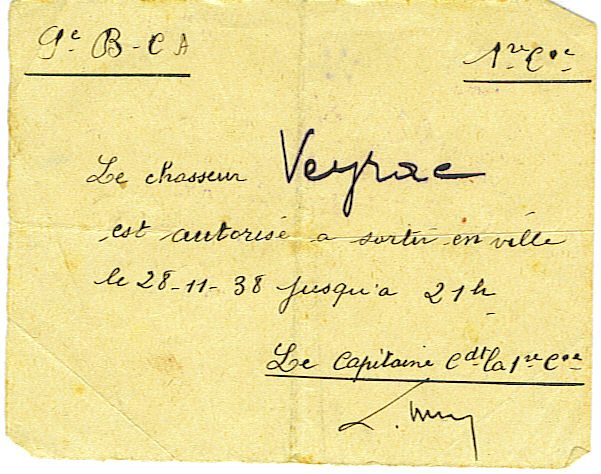 9e B-C A
1re Cie
Le chasseur Veyrac
est autorisé a sortir en ville
le 28-11-38 jusqu'a 21h
Le Capitaine Cdt la 1re Cie